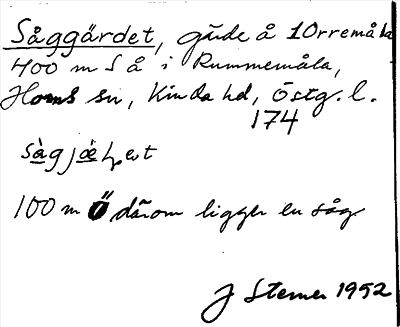 Såggärdet, gärde å 1 Orremåla
400 m S å i Rummemåla,
Horns sn, Kinda hd, Östg. l.
174
sågjæ̀ʈ
100 m Ö därom ligger en såg
J Sterner 1952